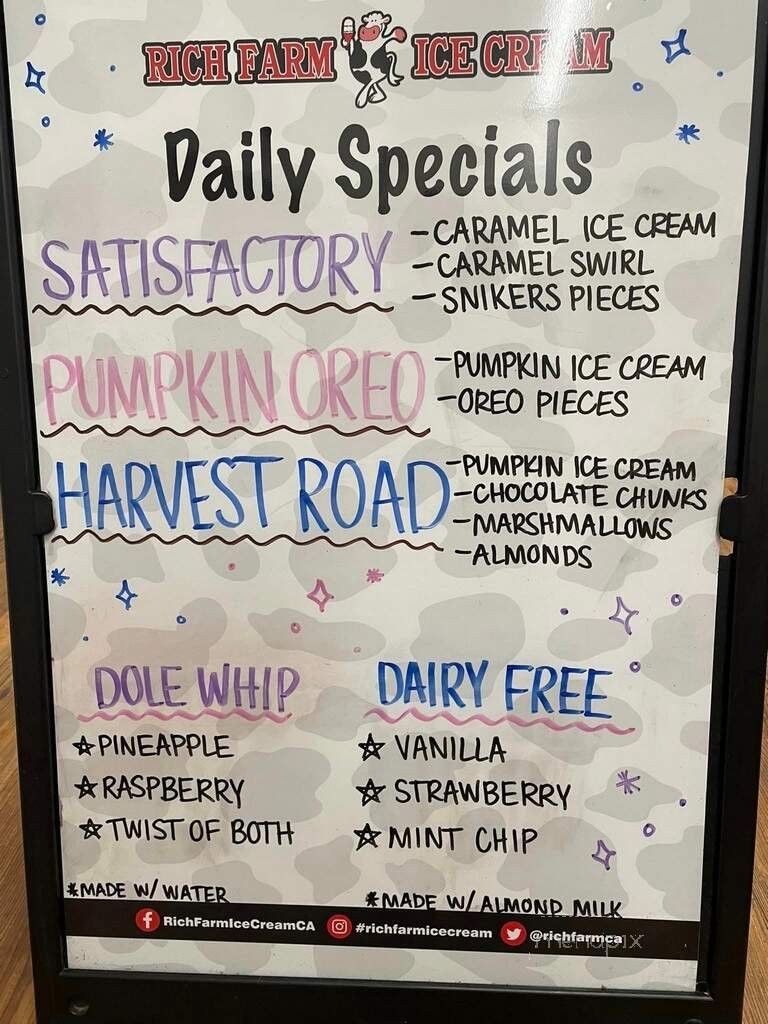 RICH FARM ICE CREAM
Daily Specials
SATISFACTORY
-CARAMEL ICE CREAM
-CARAMEL SWIRL
-SNIKERS PIECES
PUMPKIN OREO
-PUMPKIN ICE CREAM
-OREO PIECES
HARVEST ROAD
-PUMPKIN ICE CREAM
-CHOCOLATE CHUNKS
-MARSHMALLOWS
-ALMONDS
DOLE WHIP
☆PINEAPPLE
☆RASPBERRY
☆TWIST OF BOTH
*MADE W/ WATER
DAIRY FREE
☆ VANILLA
☆ STRAWBERRY
☆ MINT CHIP
*MADE W/ ALMOND MILK
RichFarmIceCreamCA #richfarmicecream @richfarmca
menupix